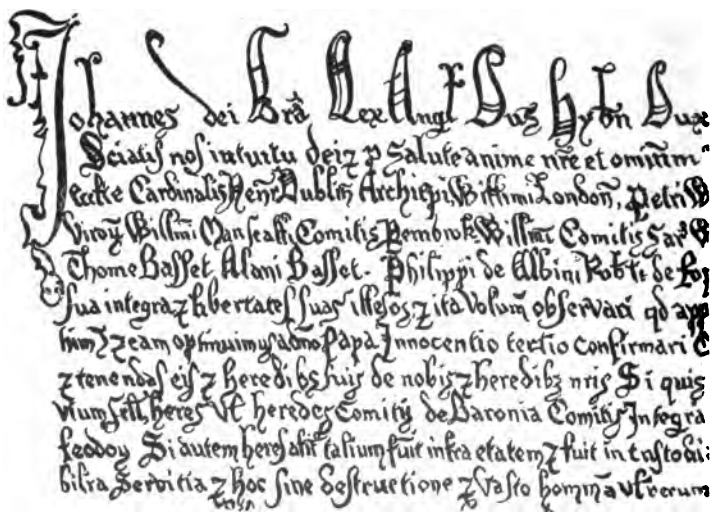 Johannes dei Gra Rex Angl Dns Hybn Dux
Sciatis nos intuitu dei ⁊ p Salute anime nre et omnium
eccłie Cardinalis Henr Dublin Archiepi, Willimi London, Petri W
viroȝ Willmi Marscalli, Comitis Pembrok, Willmi Comitis Sar W
Thome Basset Alani Basset. Philippi de Albini Robti de
sua integra, ⁊ libertates suas illesas, ⁊ ita volum observari qd app
⁊ eam optinuimus a dno Papa Innocentio tertio confirmari
⁊ tenendas eis ⁊ heredibs suis de nobis ⁊ heredibȝ nris Si quis
heres vl heredes Comitis de Baronia Comitis Integra
feodoȝ Si autem heres talium fuit infra etatem ⁊ fuit in custodi
Servitia ⁊ hoc sine destructione ⁊ vasto hominm vl rerum